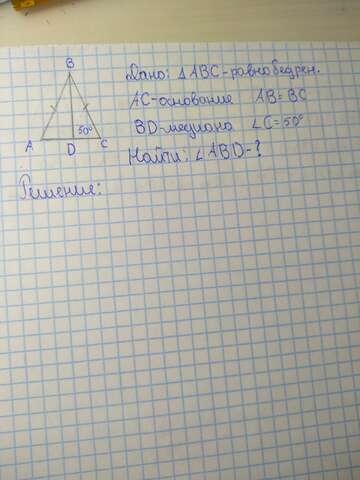 B
Дано: △ABC-равнобедрен.
AC-основание AB=BC
50°
BD-медиана ∠C=50°
A D C
Найти: ∠ABD-?
Решение: